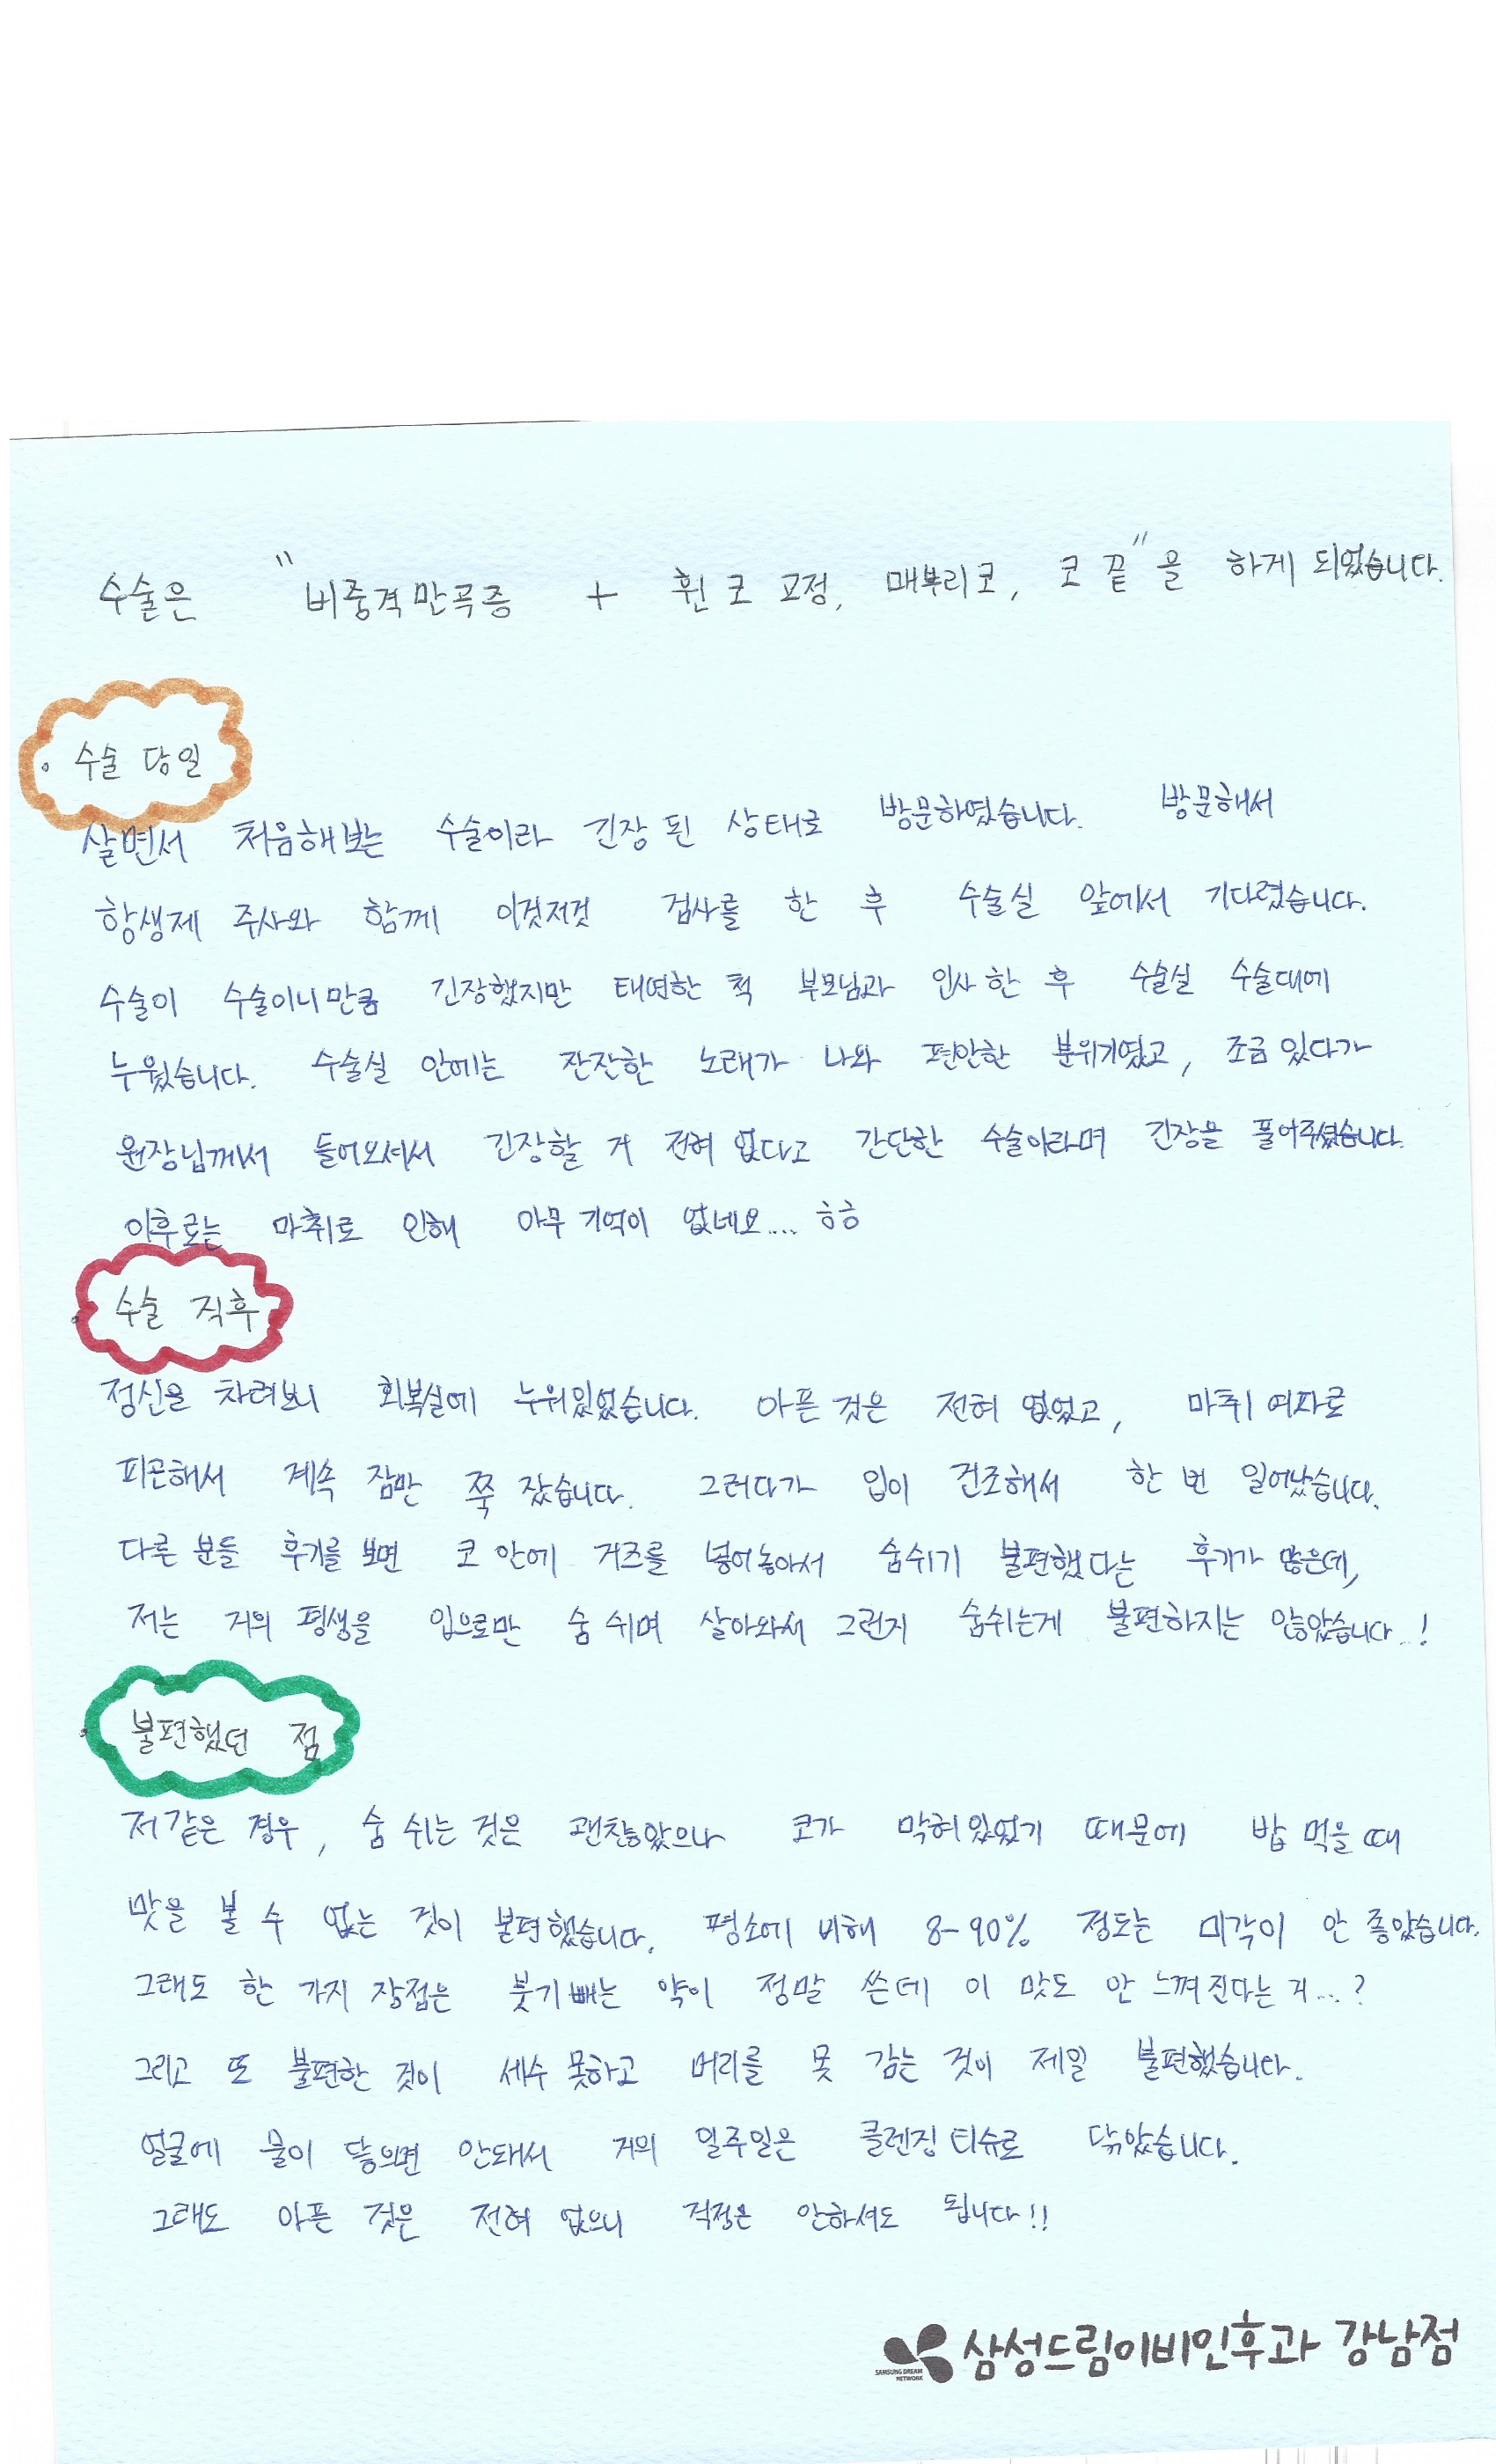 수술은 "비중격만곡증 + 휜 코 교정, 매부리코, 코 끝"을 하게 되었습니다.
· 수술 당일
살면서 처음해보는 수술이라 긴장 된 상태로 방문하였습니다. 방문해서
항생제 주사와 함께 이것저것 검사를 한 후 수술실 앞에서 기다렸습니다.
수술이 수술이니만큼 긴장했지만 태연한 척 부모님과 인사 한 후 수술실 수술대에
누웠습니다. 수술실 안에는 잔잔한 노래가 나와 편안한 분위기였고, 조금 있다가
원장님께서 들어오셔서 긴장할 거 전혀 없다고 간단한 수술이라며 긴장을 풀어주셨습니다.
이후로는 마취로 인해 아무 기억이 없네요.... ㅎㅎ
· 수술 직후
정신을 차려보니 회복실에 누워있었습니다. 아픈 것은 전혀 없었고, 마취 여파로
피곤해서 계속 잠만 쭉 잤습니다. 그러다가 입이 건조해서 한 번 일어났습니다.
다른 분들 후기를 보면 코 안에 거즈를 넣어놓아서 숨쉬기 불편했다는 후기가 많은데,
저는 거의 평생을 입으로만 숨 쉬며 살아와서 그런지 숨쉬는게 불편하지는 않았습니다..!
· 불편했던 점
저 같은 경우, 숨 쉬는 것은 괜찮았으나 코가 막혀있었기 때문에 밥 먹을 때
맛을 볼 수 없는 것이 불편했습니다. 평소에 비해 8-90% 정도는 미각이 안 좋았습니다.
그래도 한 가지 장점은 붓기 빼는 약이 정말 쓴데 이 맛도 안 느껴진다는 거...?
그리고 또 불편한 것이 세수 못하고 머리를 못 감는 것이 제일 불편했습니다.
얼굴에 물이 닿으면 안돼서 거의 일주일은 클렌징 티슈로 닦았습니다.
그래도 아픈 것은 전혀 없으니 걱정은 안하셔도 됩니다!!
삼성드림이비인후과 강남점
SAMSUNG DREAM
NETWORK